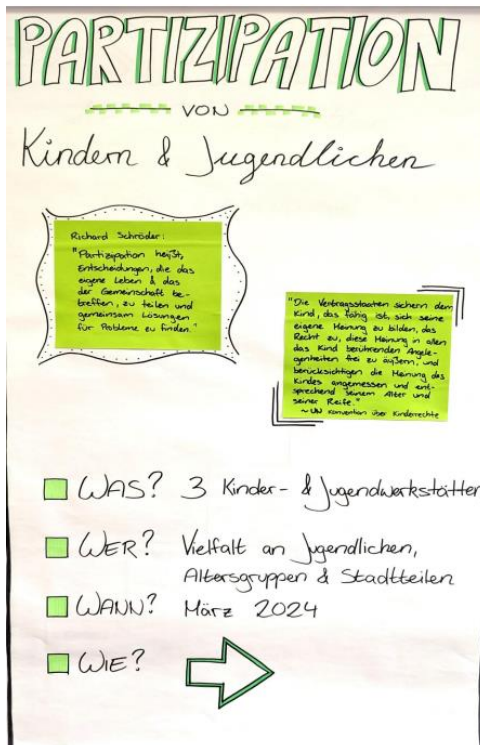 PARTIZIPATION
VON
Kindern & Jugendlichen
Richard Schröder:
"Partizipation heißt,
Entscheidungen, die das
eigene Leben & das
der Gemeinschaft be-
treffen, zu teilen und
gemeinsam Lösungen
für Probleme zu finden."
"Die Vertragsstaaten sichern dem
Kind, das fähig ist, sich seine
eigene Meinung zu bilden, das
Recht zu, diese Meinung in allen
das Kind berührenden Angele-
genheiten frei zu äußern, und
berücksichtigen die Meinung des
Kindes angemessen und ent-
sprechend seinem Alter und
seiner Reife."
~ UN Konvention über Kinderrechte
WAS? 3 Kinder- & Jugendwerkstätten
WER? Vielfalt an Jugendlichen,
Altersgruppen & Stadtteilen
WANN? März 2024
WIE?